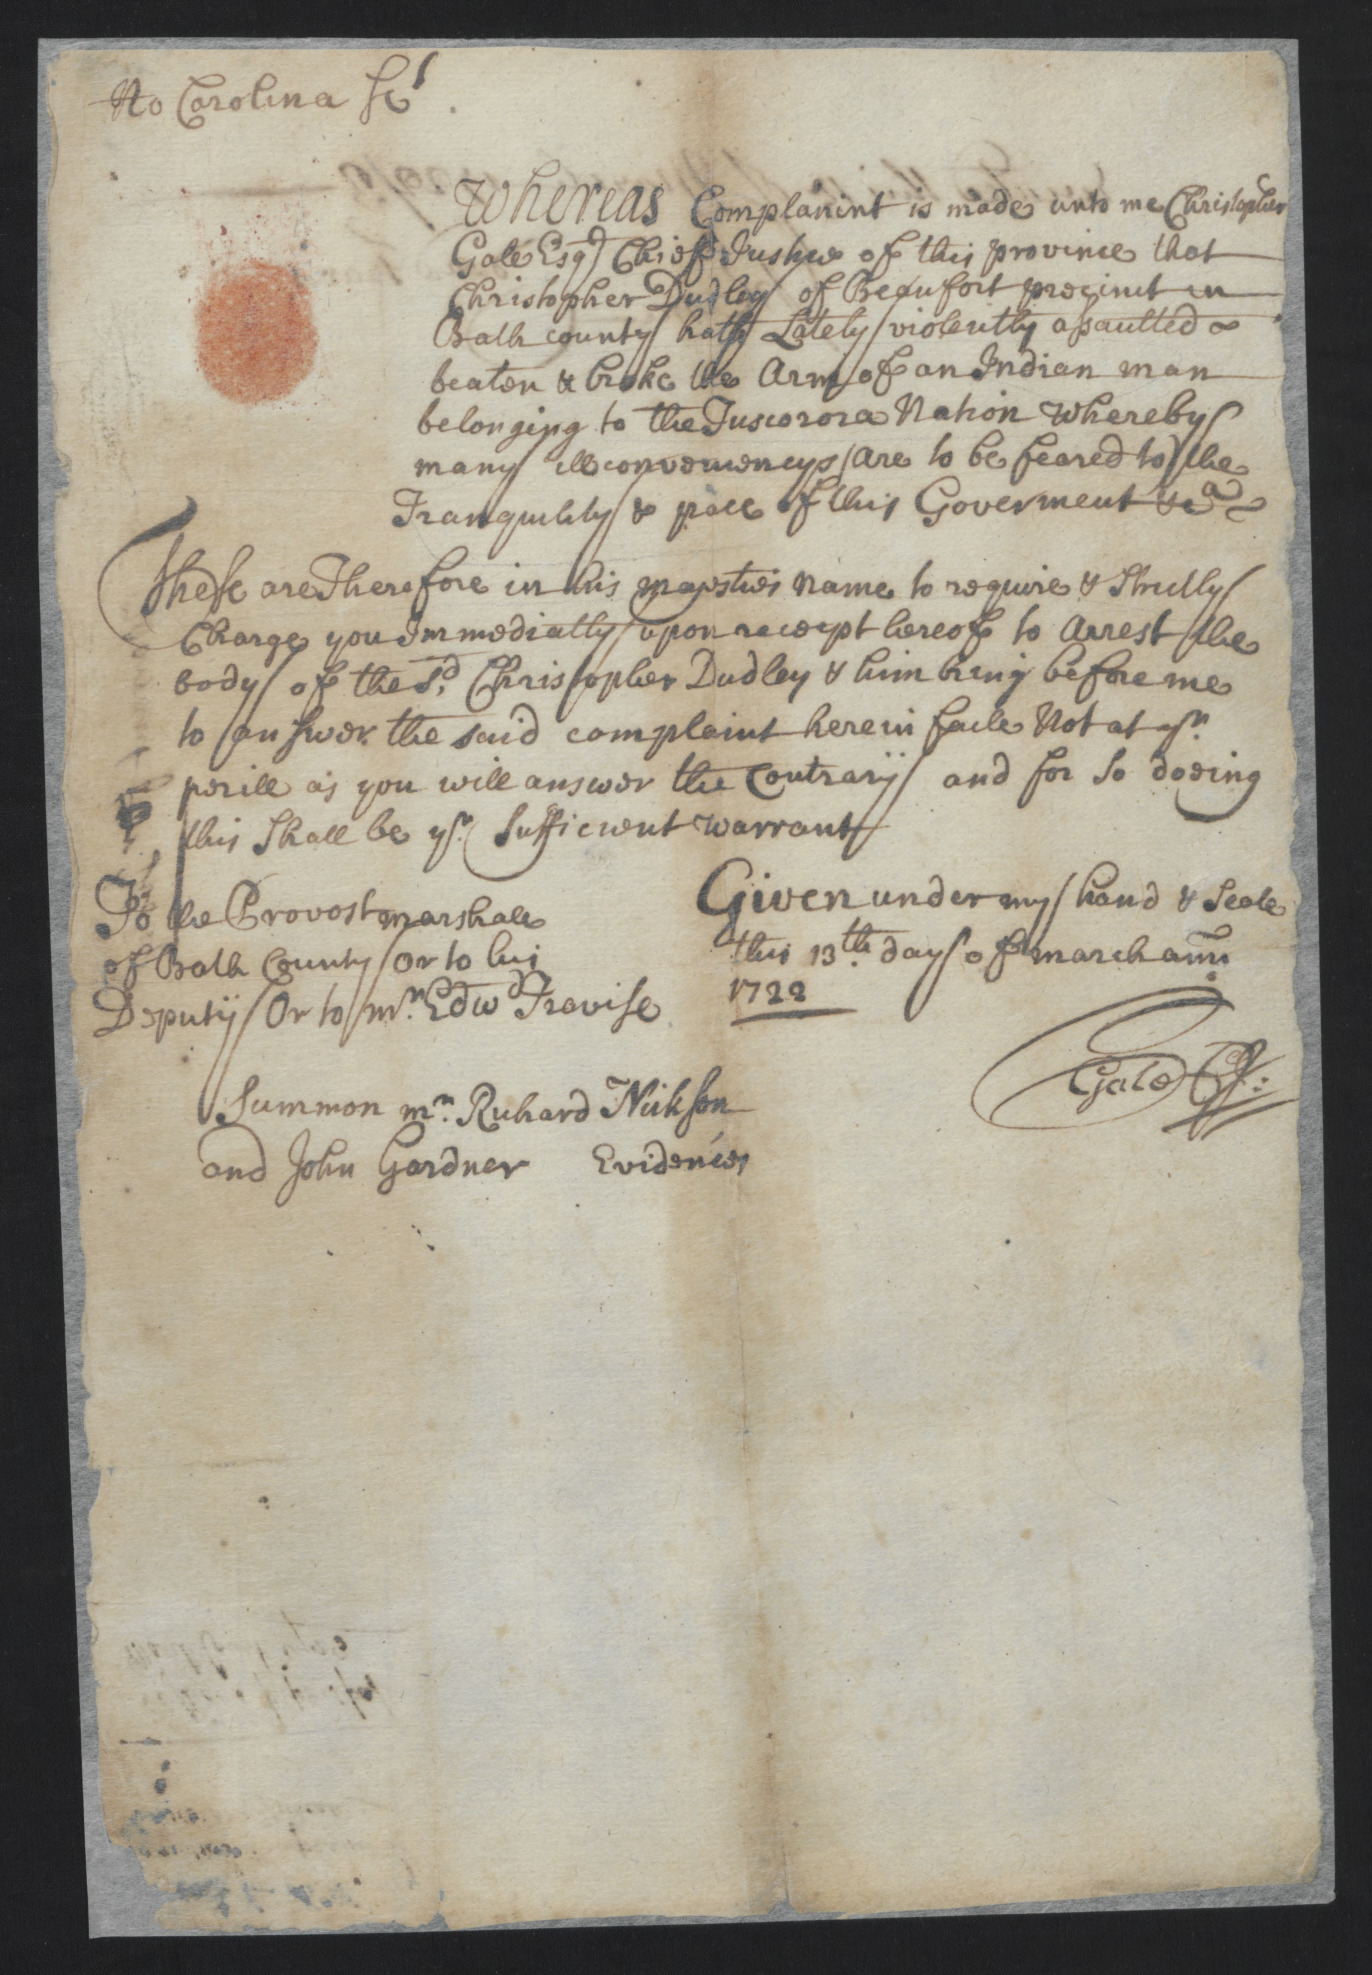 No Carolina Sct
Whereas Complanint is made unto me Christopher
Gale Esqr Chief Justice of this province that
Christopher Dudley of Beaufort precinct in
Bath county hath Lately violently assaulted &
beaten & broke the Arm of an Indian man
belonging to the Tuscorora Nation Whereby
many Illconveniencys are to be feared to the
Tranquility & pace of this Goverment &ca
These are Therefore in his majesties Name to require & Strictly
Charge you Immediatly upon receipt hereof to Arrest the
body of the sd. Christopher Dudley & him bring before me
to answer the said complaint herein faile Not at yr.
perill as you will answer the Contrary and for So doeing
this Shall be yr. Sufficient warrant
To the Provost marshale
of Bath County Or to his
Deputy Or to mr. Edwd Travise
Given under my hand & Seale
this 13th. day of march
1722
Gale CJ:
Summon mr. Richard Nickson
and John Gardner Evidences